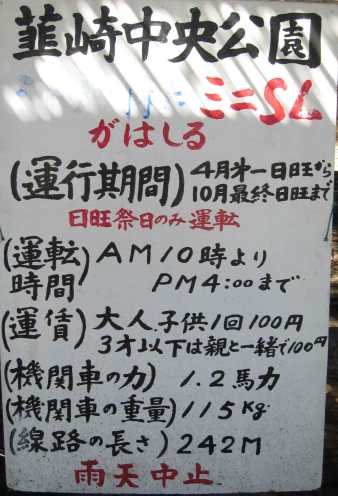 韮崎中央公園
ミニSL
がはしる
(運行期間) 4月才一日旺から
10月最終日旺まで
日旺祭日のみ運転
(運転時間) AM10時より
PM4:00まで
(運賃) 大人.子供1回100円
3才以下は親と一緒で100円
(機関車の力) 1.2馬力
(機関車の重量) 115Kg
(線路の長さ) 242M
雨天中止